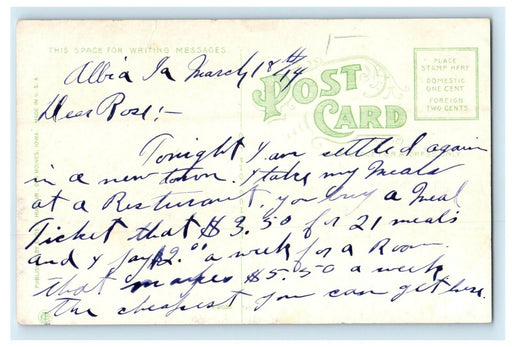 THIS SPACE FOR WRITING MESSAGES
Albia Ia March 18th/14
POST CARD
PLACE
STAMP HERE
DOMESTIC
ONE CENT
FOREIGN
TWO CENTS
Dear Rose:-
Tonight I am settled again
in a new town. I take my Meals
at a Resturant. you buy a Meal
Ticket that $3.50 for 21 meals
and I pay $2.00 a week for a Room
that makes $5.50 a week.
the cheapest you can get here.
MADE IN U.S.A.